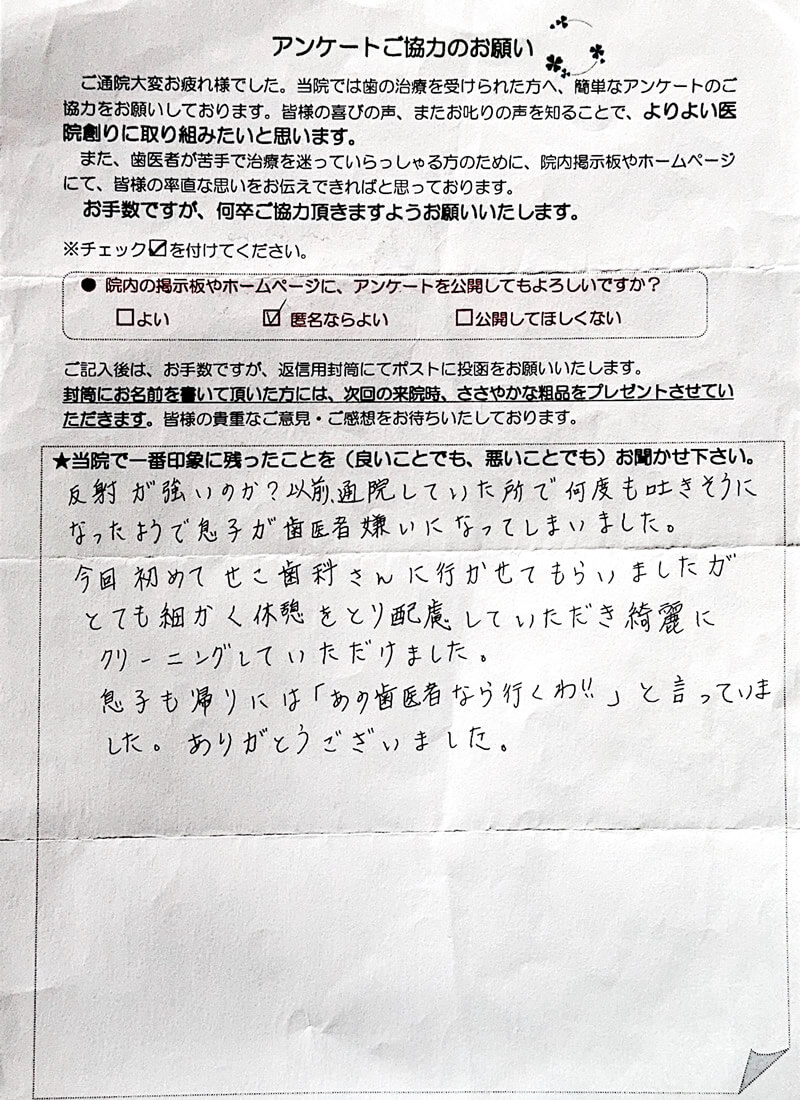 アンケートご協力のお願い
ご通院大変お疲れ様でした。当院では歯の治療を受けられた方へ、簡単なアンケートのご
協力をお願いしております。皆様の喜びの声、またお叱りの声を知ることで、よりよい医
院創りに取り組みたいと思います。
また、歯医者が苦手で治療を迷っていらっしゃる方のために、院内掲示板やホームページ
にて、皆様の率直な思いをお伝えできればと思っております。
お手数ですが、何卒ご協力頂きますようお願いいたします。
※チェック☑を付けてください。
● 院内の掲示板やホームページに、アンケートを公開してもよろしいですか？
□よい ☑ 匿名ならよい □公開してほしくない
ご記入後は、お手数ですが、返信用封筒にてポストに投函をお願いいたします。
封筒にお名前を書いて頂いた方には、次回の来院時、ささやかな粗品をプレゼントさせてい
ただきます。皆様の貴重なご意見・ご感想をお待ちいたしております。
★当院で一番印象に残ったことを（良いことでも、悪いことでも）お聞かせ下さい。
反射が強いのか？以前、通院していた所で何度も吐きそうに
なったようで息子が歯医者嫌いになってしまいました。
今回初めてせこ歯科さんに行かせてもらいましたが
とても細かく休憩をとり配慮していただき綺麗に
クリーニングしていただけました。
息子も帰りには「あの歯医者なら行くわ!!」と言っていま
した。ありがとうございました。